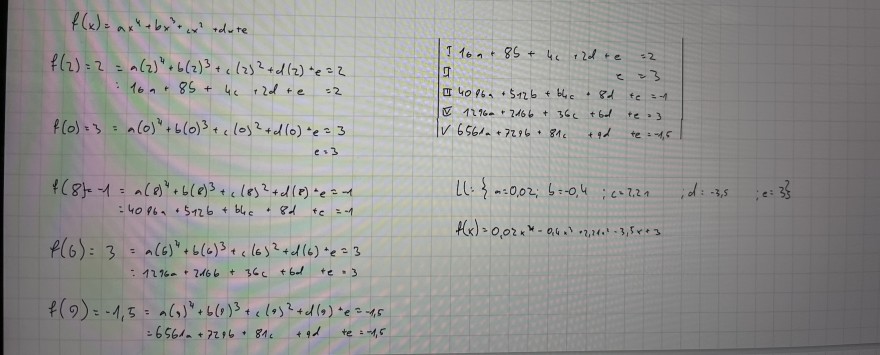 f(x) = ax⁴ + bx³ + cx² + dx + e
f(2) = 2 = a(2)⁴ + b(2)³ + c(2)² + d(2) + e = 2
: 16a + 8b + 4c + 2d + e = 2
f(0) = 3 = a(0)⁴ + b(0)³ + c(0)² + d(0) + e = 3
e = 3
f(8) = -1 = a(8)⁴ + b(8)³ + c(8)² + d(8) + e = -1
: 4096a + 512b + 64c + 8d + e = -1
f(6) = 3 = a(6)⁴ + b(6)³ + c(6)² + d(6) + e = 3
: 1296a + 216b + 36c + 6d + e = 3
f(9) = -1,5 = a(9)⁴ + b(9)³ + c(9)² + d(9) + e = -1,5
= 6561a + 729b + 81c + 9d + e = -1,5
I 16a + 8b + 4c + 2d + e = 2
II e = 3
III 4096a + 512b + 64c + 8d + e = -1
IV 1296a + 216b + 36c + 6d + e = 3
V 6561a + 729b + 81c + 9d + e = -1,5
LL: { a=0,02; b=-0,4 ; c=2,21 ; d=-3,5 ; e=3}
f(x) = 0,02x⁴ - 0,4x³ + 2,21x² - 3,5x + 3